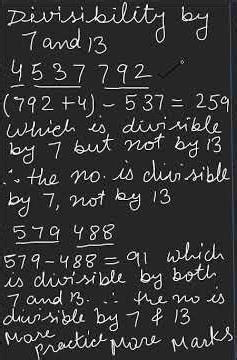 Divisibility by
7 and 13
4 537 792
(792 + 4) - 537 = 259
which is divisible
by 7 but not by 13
∴ the no. is divisible
by 7, not by 13
579 488
579 - 488 = 91 which
is divisible by both
7 and 13. ∴ the no is
divisible by 7 & 13
More practice More Marks